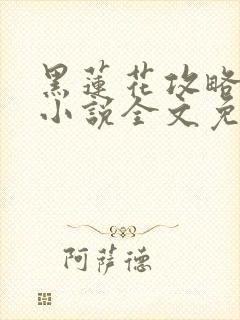 黑蓮花攻略
小說全文免
阿薩德